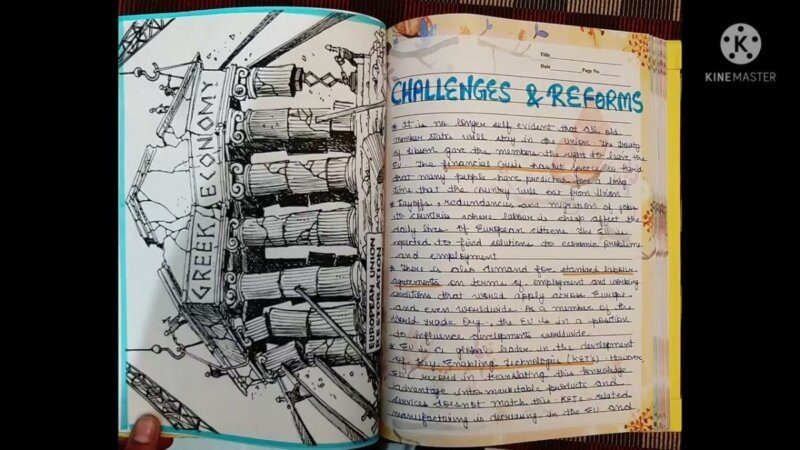 GREEK ECONOMY
EUROPEAN UNION
FOUNDATION
Title
Date Page No.
CHALLENGES & REFORMS
* It is no longer self evident that all old
member states will stay in the union. The Treaty
of Lisbon gave the members the right to leave the
EU. The financial crisis has hit Greece so hard
that many people have predicted for a long
time that the country will exit from Union
* Layoffs, redundancies and migration of jobs
to countries where labour is cheap affect the
daily lives of European citizens. The EU is
expected to find solutions to economic problems
and employment
* There is also demand for standard labour
agreements on terms of employment and working
conditions that would apply across Europe
and even worldwide. As a member of the
World Trade Org., the EU is in a position
to influence developments worldwide.
* EU is a global leader in the development
of Key Enabling Technologies (KETs). However
EU record in translating this knowledge
advantage into marketable products and
services doesnot match this KETs-related
manufacturing is decreasing in the EU and
KINEMASTER